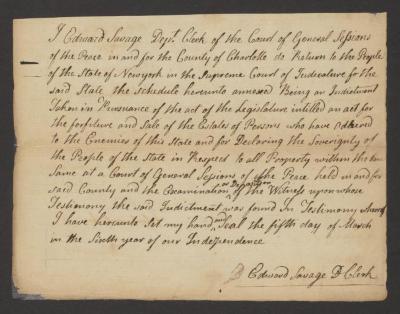 I Edward Savage Dept. Clerk of the Court of General Sessions
of the Peace in and for the County of Charlotte do Return to the People
of the State of Newyork in the Supreme Court of Judicature for the
said State the Schedule hereunto annexed Being an Indictment
Taken in Pursuance of the act of the Legislature intitled an act for
the forfiture and Sale of the Estates of Persons who have Adhered
to the Enemies of this State and for Declaring the Sovereignty of
the People of the State in Respect to all Property within the
Same at a Court of General Sessions of the Peace held in and for
said County and the Examination or Deposition of the Witness upon whose
Testimony the said Indictment was found In Testimony
I have hereunto Set my hand and Seal the fifth day of March
in the Sixth year of our Independence
Edward Savage D Clerk